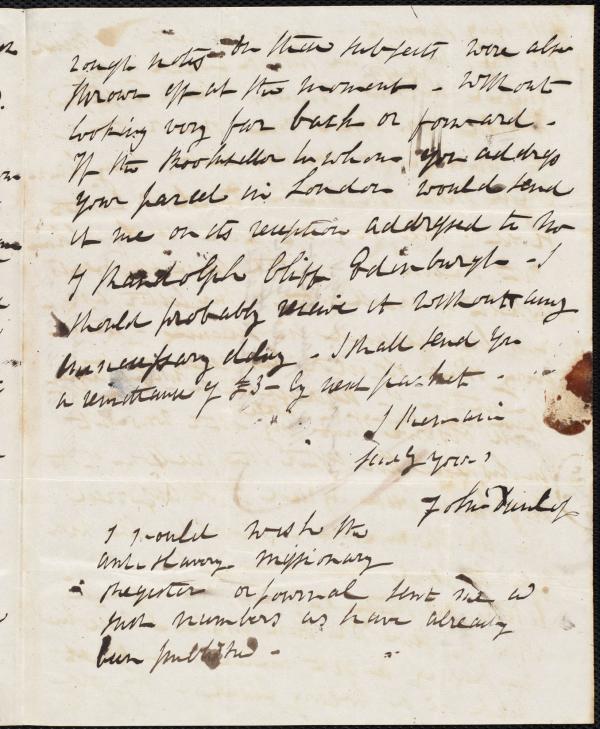 rough notes on these subjects were also
thrown off at the moment - without
looking very far back or forward -
If the Bookseller to whom you address
your parcel in London would send
it me on its reception addressed to No
7 Randolph Cliff Edinburgh - I
should probably receive it without any
unnecessary delay - I shall send you
a remittance of £3 - by next packet -
I Remain
truly yours
John Dunlop
I would wish the
anti slavery missionary
Register or journal sent me as
such numbers as have already
been published -